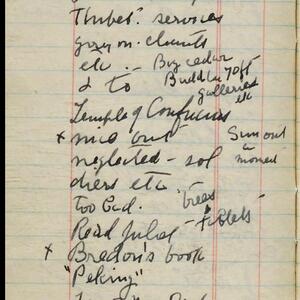 Thibet. services
going on. chants
etc -. Big cedar
Buddha 70 ft
& to galleries
etc
Temple of Confucius
x nice out Sun out
neglected - sol a moment
diers etc
too bad. "trees
Read Juliet - tablets
x Bredon's book
"Peking"